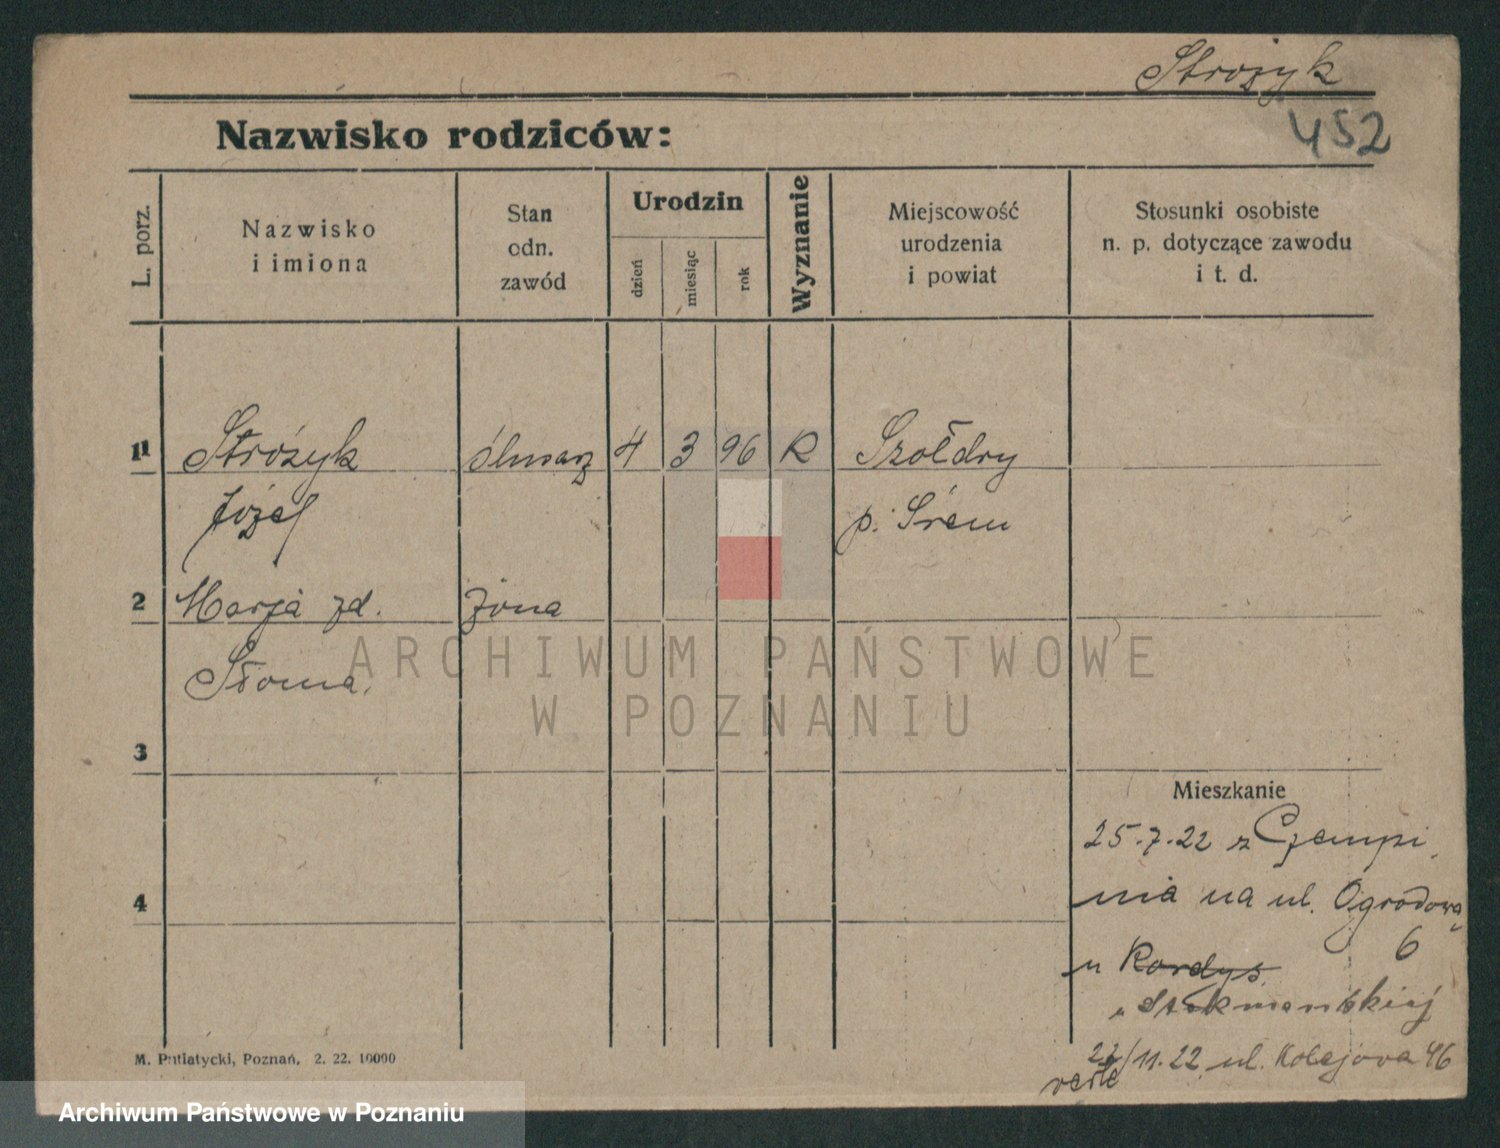 Strożyk
452
Nazwisko rodziców:
L. porz.
Nazwisko
i imiona
Stan
odn.
zawód
Urodzin
dzień
miesiąc
rok
Wyznanie
Miejscowość
urodzenia
i powiat
Stosunki osobiste
n. p. dotyczące zawodu
i t. d.
1 Strożyk ślusarz 4 3 96 R Szołdry
Józef p. Śrem
2 Marja zd. żona
Słoma.
3
4
Mieszkanie
25.7.22 z Czempi
nia na ul. Ogrodową
6
u Kordys
22/11.22 ul. Kolejowa 46
verte
M. Putiatycki, Poznań, 2. 22. 10000
ARCHIWUM PAŃSTWOWE
W POZNANIU
Archiwum Państwowe w Poznaniu